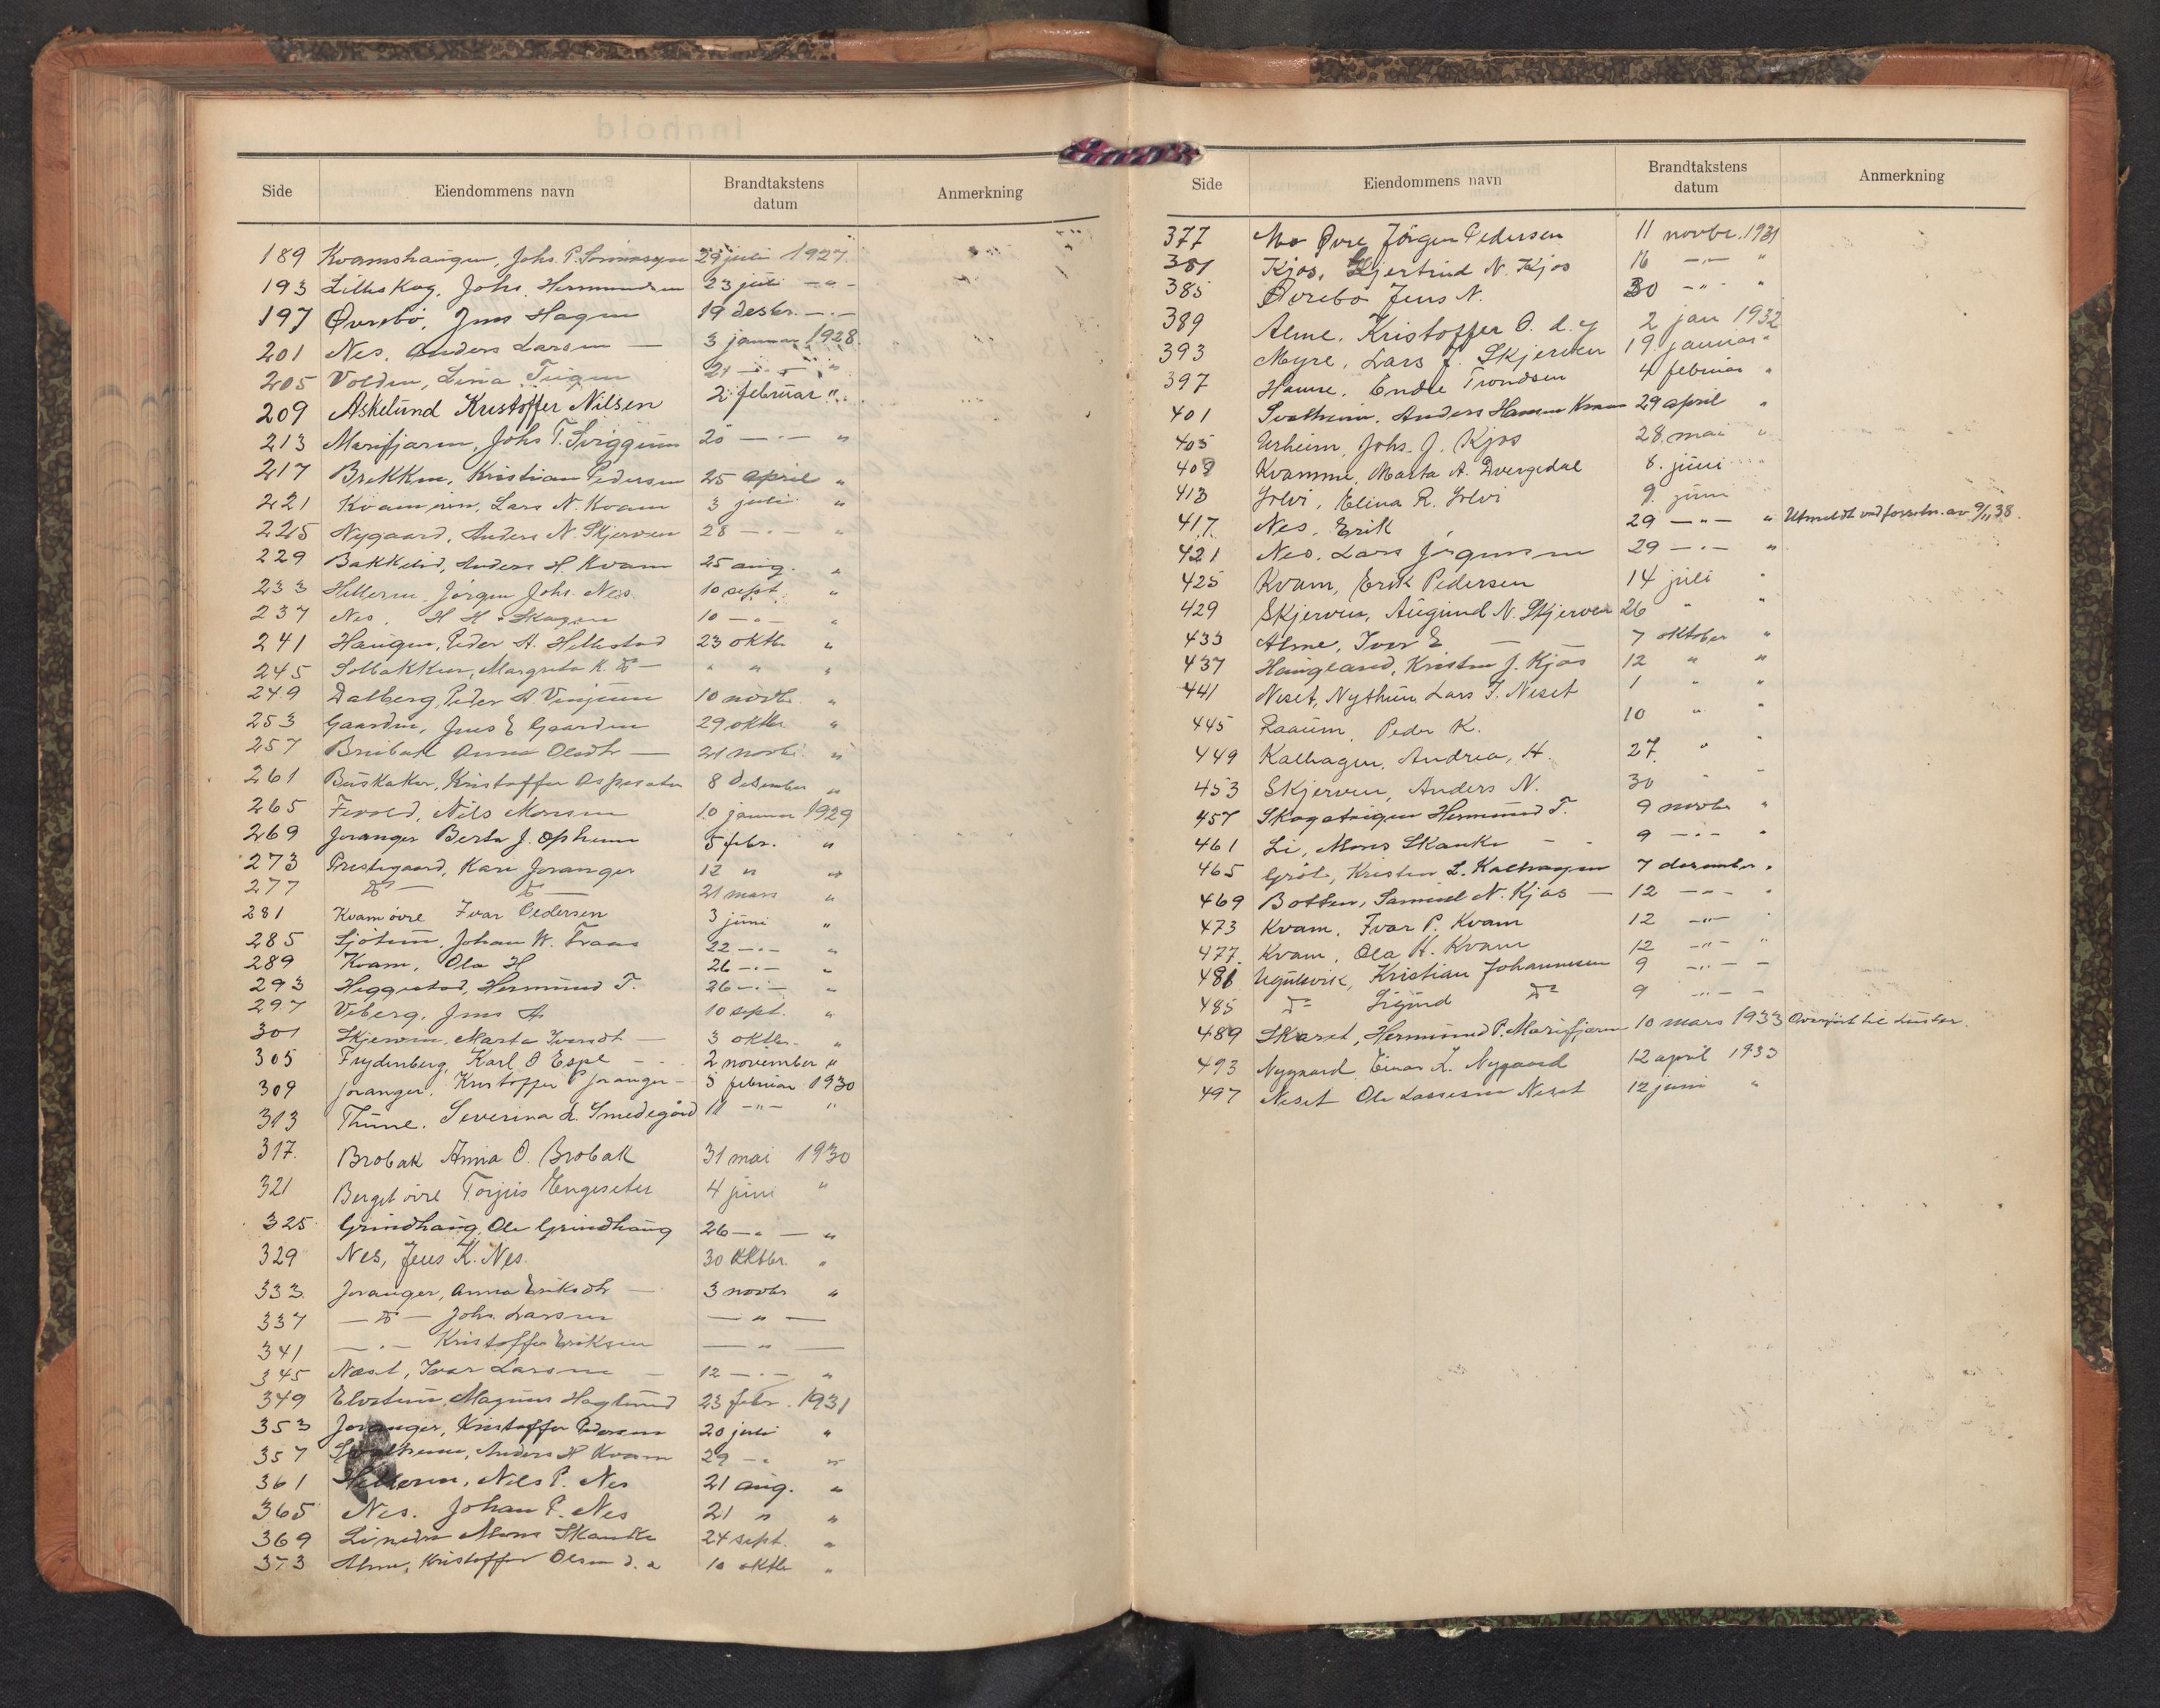 Side Eiendommens navn Brandtakstens datum Anmerkning
189 Kvamshaugen, Johs. P. 29 juli 1927
193 Lilleskog, Johs. Hermundsen 23 juli —"—
197 Øvrebø, Jens Hagen 19 desbr. —"—
201 Nes, Anders Larsen — 3 januar 1928
205 Volden, Lina Teigen 21 —"— "
209 Askelund Kristoffer Nilsen 2 februar "
213 Marifjøren, Johs T. Svíggum 20 —"— "
217 Brekken, Kristian Pedersen 25 april "
221 Lars N. Kvam 3 juli "
225 Nygaard, Anders N. Skjerven 28 —"— "
229 Bakkelid, Anders H. Kvam 25 aug. "
233 Helleren, Jørgen Johs. Nes 10 sept. "
237 Nes, H. H. Skagen 10 —"— "
241 Haugen, Peder A. Hellestad 23 oktbr "
245 Solbakken, Margreta K. do — " " "
249 Dalberg, Peder A. Vinjum 10 novbr. "
253 Gaarden, Jens E Gaarden 29 oktbr. "
257 Brobak Anna Olsdtr — 21 novbr. "
261 Buskaker, Kristoffer 8 desember "
265 Fivold, Nils Monsen 10 januar 1929
269 Joranger Berta J. Opheim 5 febr. "
273 Prestegaard, Kari Joranger 12 " "
277 do — do — 21 mars "
281 Kvam øvre Ivar Pedersen 3 juni "
285 Sjøtun, Johan W. Fraas 22 —"— "
289 Kvam, Ola H 26 —"— "
293 Heggestad, Hermund T. 26 —"— "
297 Viberg, Jens A 10 sept. "
301 Skjerven, Marta Iversdt — 3 oktbr. "
305 Frydenberg, Karl O Espe — 2 november "
309 Joranger, Kristoffer P Joranger — 5 februar 1930
313 Thune. Severina L. Smedegård 11 —"— "
317. Brobak Anna O. Brobak 31 mai 1930
321 Berget øvre Torjus Engeseter 4 juni "
325 Grindhaug, Ole Grindhaug 26 —"— "
329 Nes, Jens K. Nes. 30 oktbr. "
333 Joranger, Anna Eriksdtr — 3 novbr "
337 — do — Johs. Larsen — " —
341 — " — Kristoffer Eriksen — " —
345 Neset, Ivar Larsen — 12 —"— "
349 Elvetun, Magnus Haglund 23 febr. 1931
353 Joranger, Kristoffer Pedersen 20 juli "
357 Anders H Kvam 29 —"— "
361 Helleren, Nils P. Nes 21 aug. "
365 Nes. Johan P. Nes 21 " "
369 Li nedre Mons Skanke 24 sept. "
373 Alme, Kristoffer Olsen d. e 10 oktbr "
Side Eiendommens navn Brandtakstens datum Anmerkning
377 Mo Øvre Jørgen Pedersen 11 novbr. 1931
381 Kjos, Gjertrud N. Kjos 16 —"— "
385 Øvrebø Jens N. 30 —"— "
389 Alme, Kristoffer O. d.y 2 jan 1932
393 Myre, Lars J. Skjerven 19 januar "
397 Hamre, Endre Trondsen 4 februar "
401 Svatheim, Anders Hansen Kvam 29 april "
405 Urheim, Johs. J. Kjos 28. mai "
409 Kvamme, Marta A. Dvergedal 8. juni "
413 Solvi, Elina R. Solvi 9. juni
417. Nes, Erik 29 —"— " Utmeldt ved forretn. av 9/11 38.
421 Nes, Lars Jørgensen 29 —"— "
425 Kvam, Erik Pedersen 14 juli "
429 Skjerven, Augund N. Skjerven 26 " "
433 Alme, Iver E — 7 oktober "
437 Haugland, Kristen J. Kjos 12 " "
441 Neset, Nythun Lars I. Neset 1 " "
445 Raaum, Peder K. 10 " "
449 Kalhagen, Andrea, H. 27. " "
453 Skjerven, Anders N. 30 " "
457 Skogateigen Hermund T. 9 novbr "
461 Li, Mons Skanke - - 9 —"— "
465 Grøt, Kristen L. Kalhagen 7 desember "
469 Botten, Samuel N. Kjos — 12 —"— "
473 Kvam, Ivar P. Kvam 12 —"— "
477. Kvam, Ola H. Kvam 12 —"— "
481 Ugulsvik, Kristian Johannesen 9 —"— —
485 do Sigurd do 9 —"— —
489 Skaret, Hermund P. Marifjøren 10 mars 1933 Overført til Luster.
493 Nygaard, Einar L. Nygaard 12 april 1933
497 Neset Ole Lassesen Neset 12 juni "